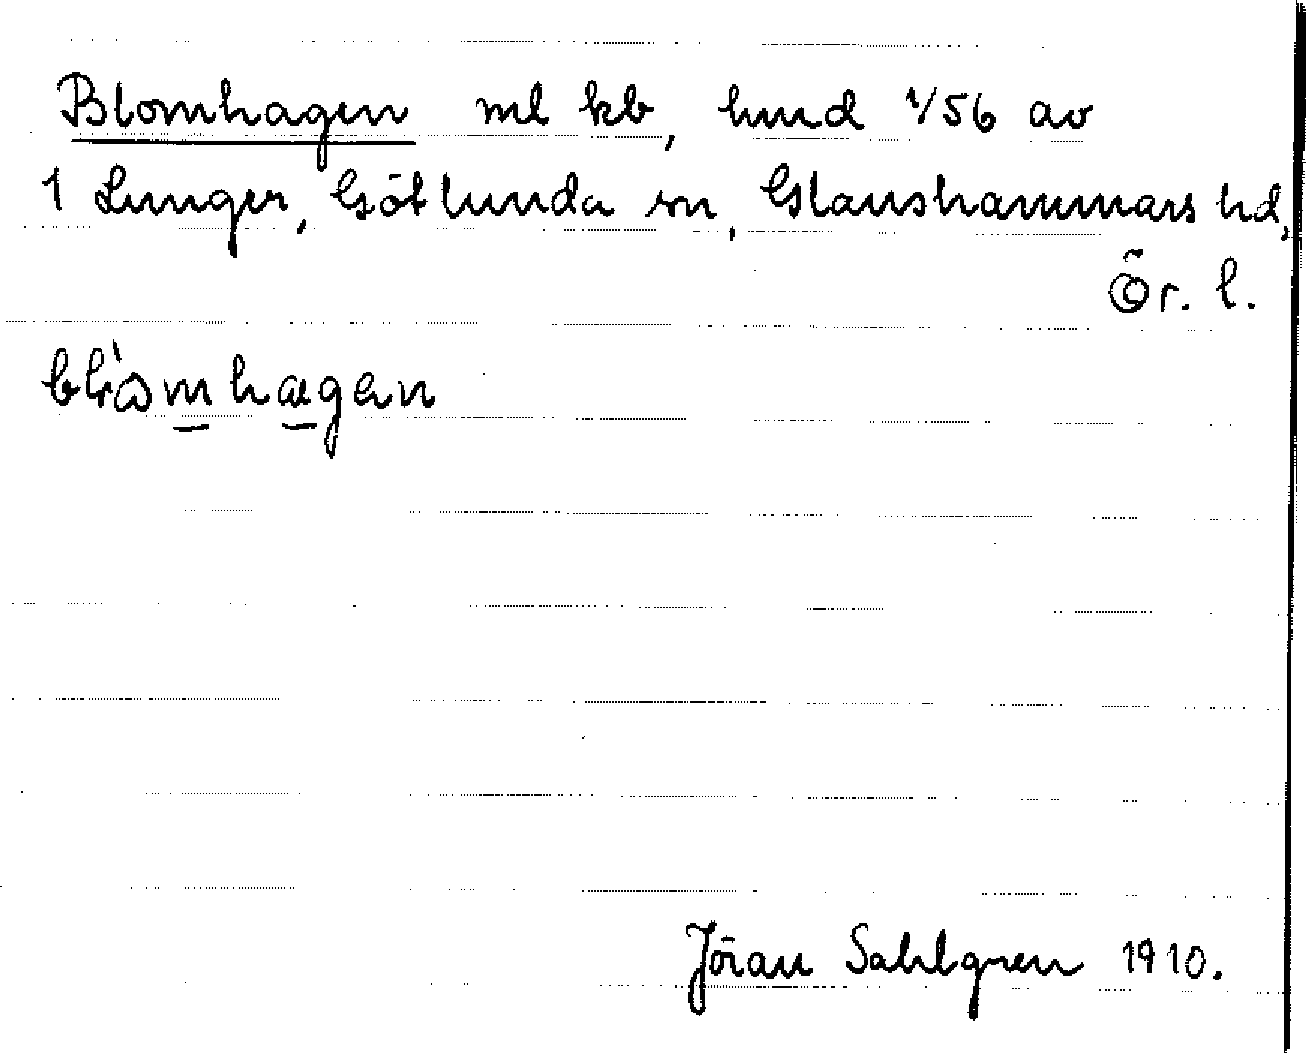 Blomhagen ml kb, hmd 1/56 av
1 Lunger, Götlunda sn, Glanshammars hd,
Ör. l.
Jöran Sahlgren 1910.